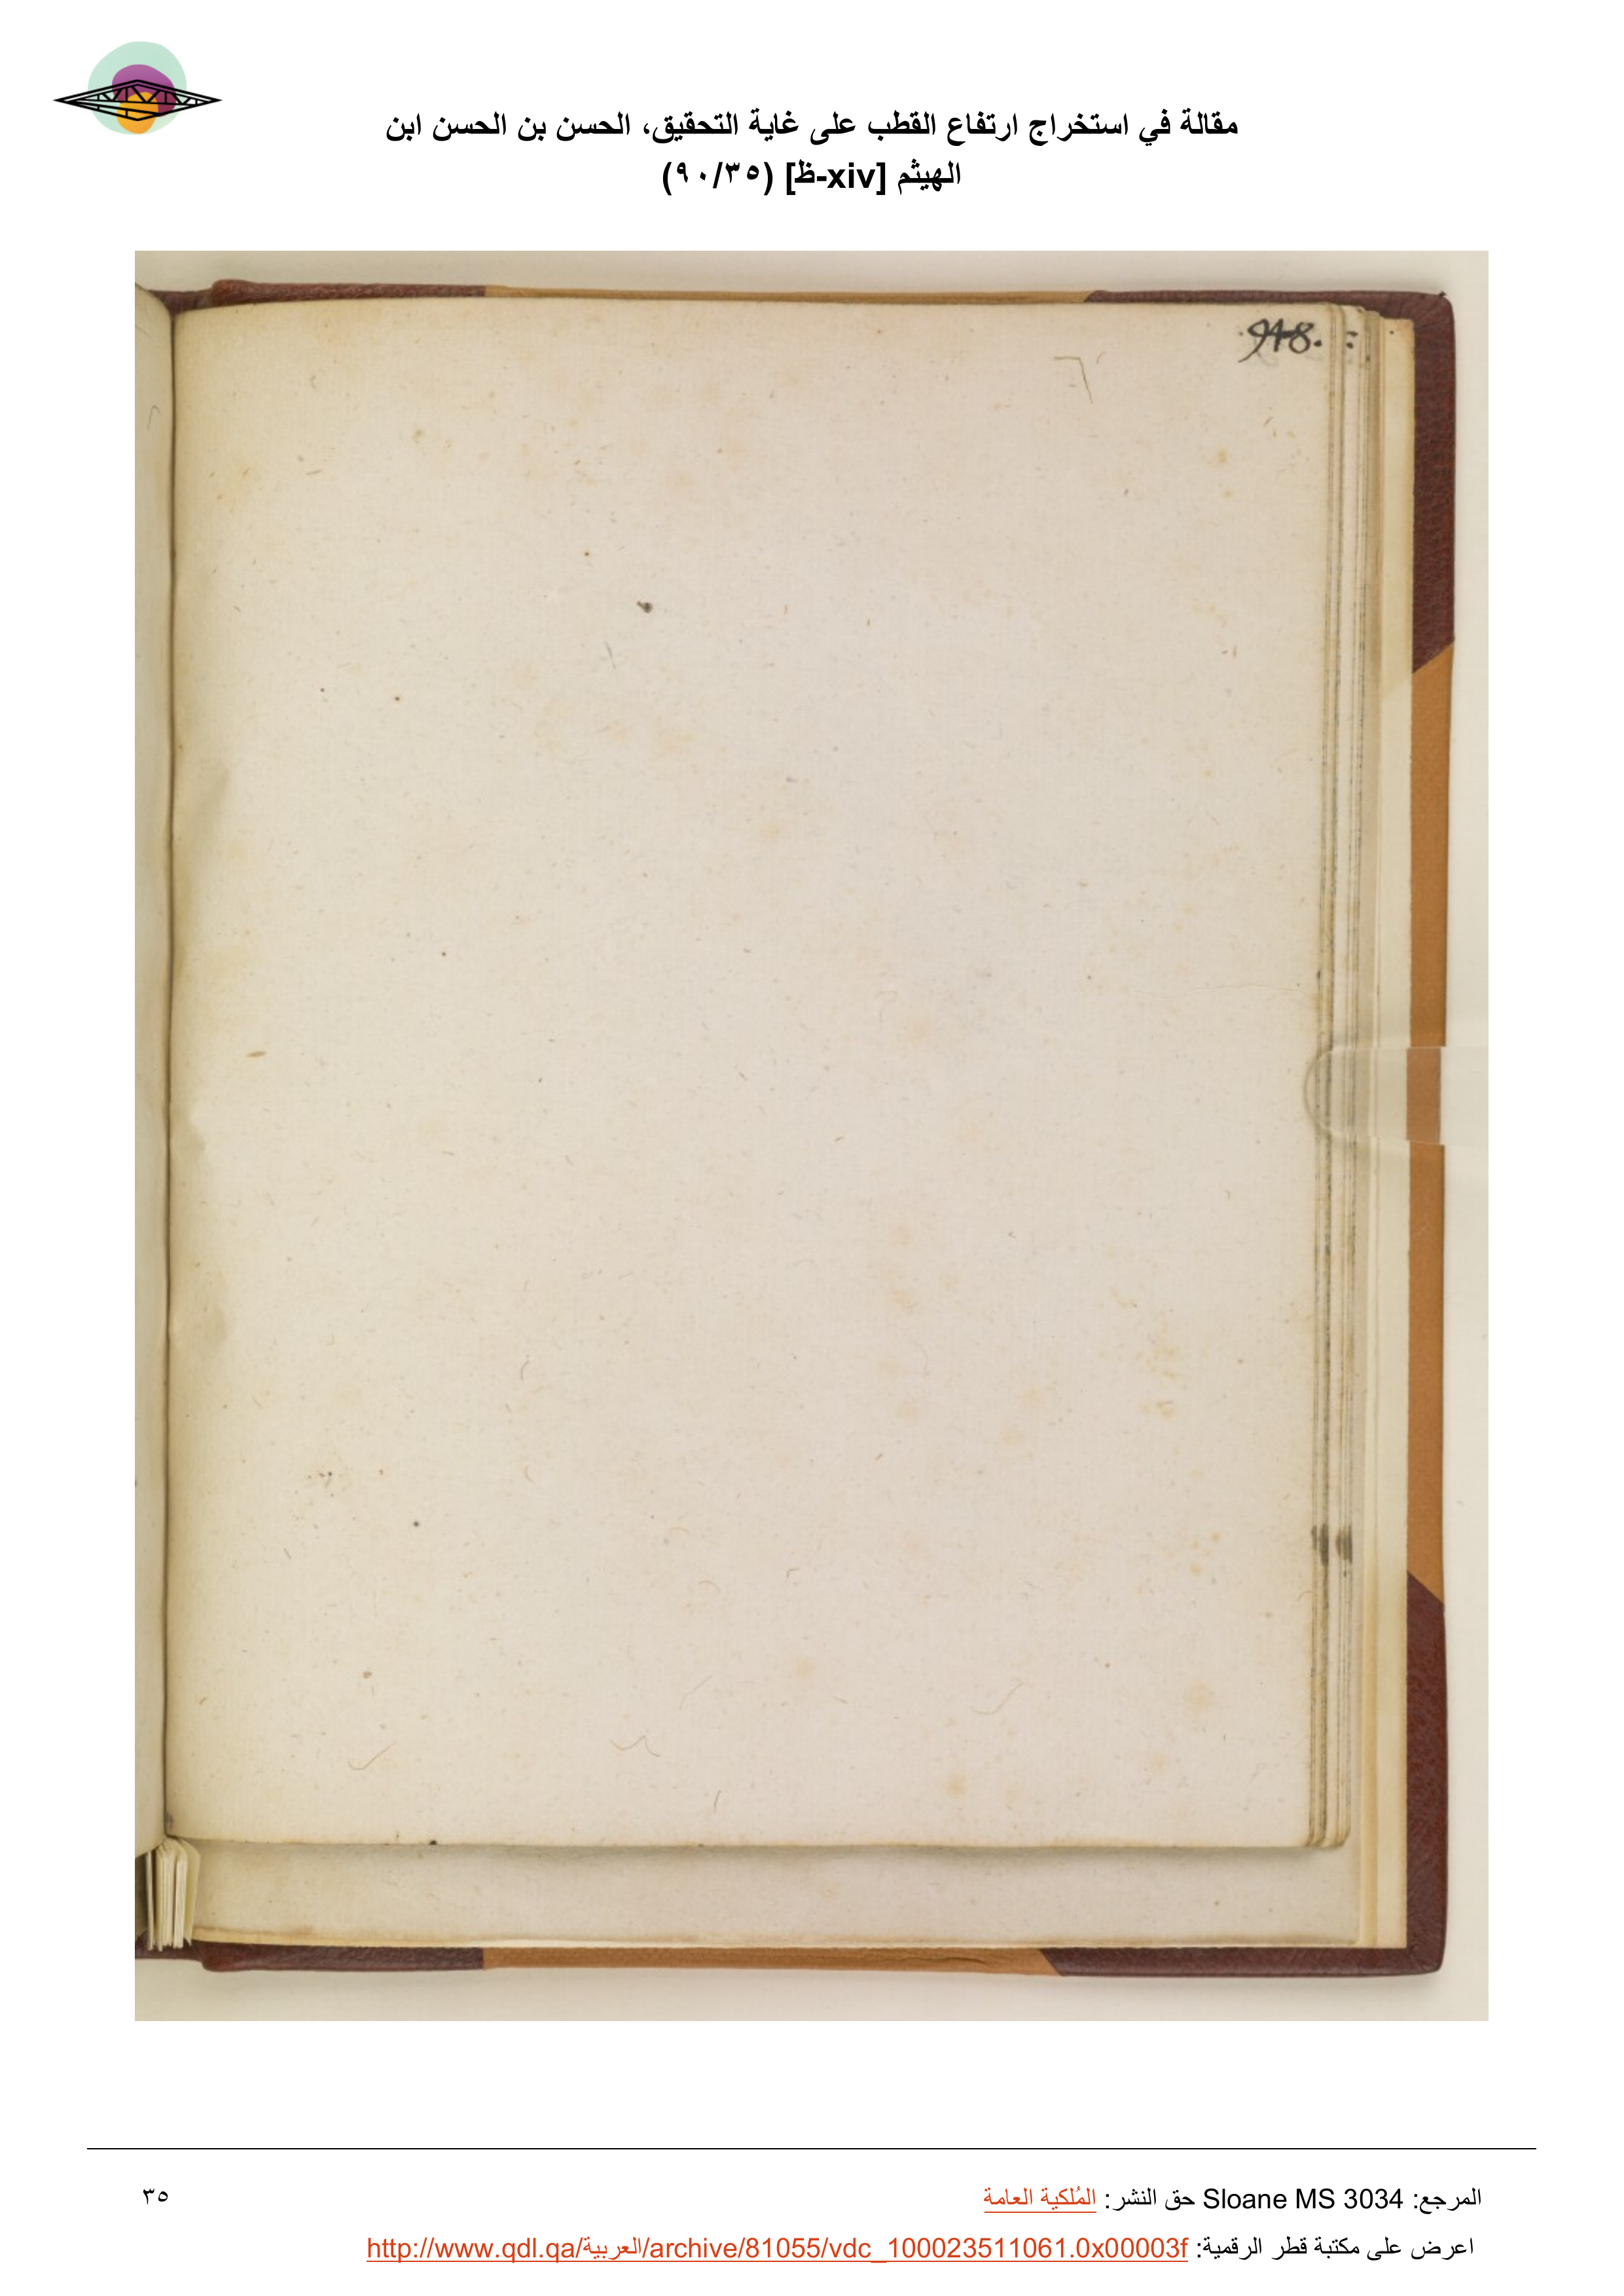 مقالة في استخراج ارتفاع القطب على غاية التحقيق، الحسن بن الحسن ابن
الهيثم [xiv-ظ] (٩٠/٣٥)
المرجع: Sloane MS 3034 حق النشر: المُلكية العامة
٣٥
اعرض على مكتبة قطر الرقمية: http://www.qdl.qa/العربية/archive/81055/vdc_100023511061.0x00003f